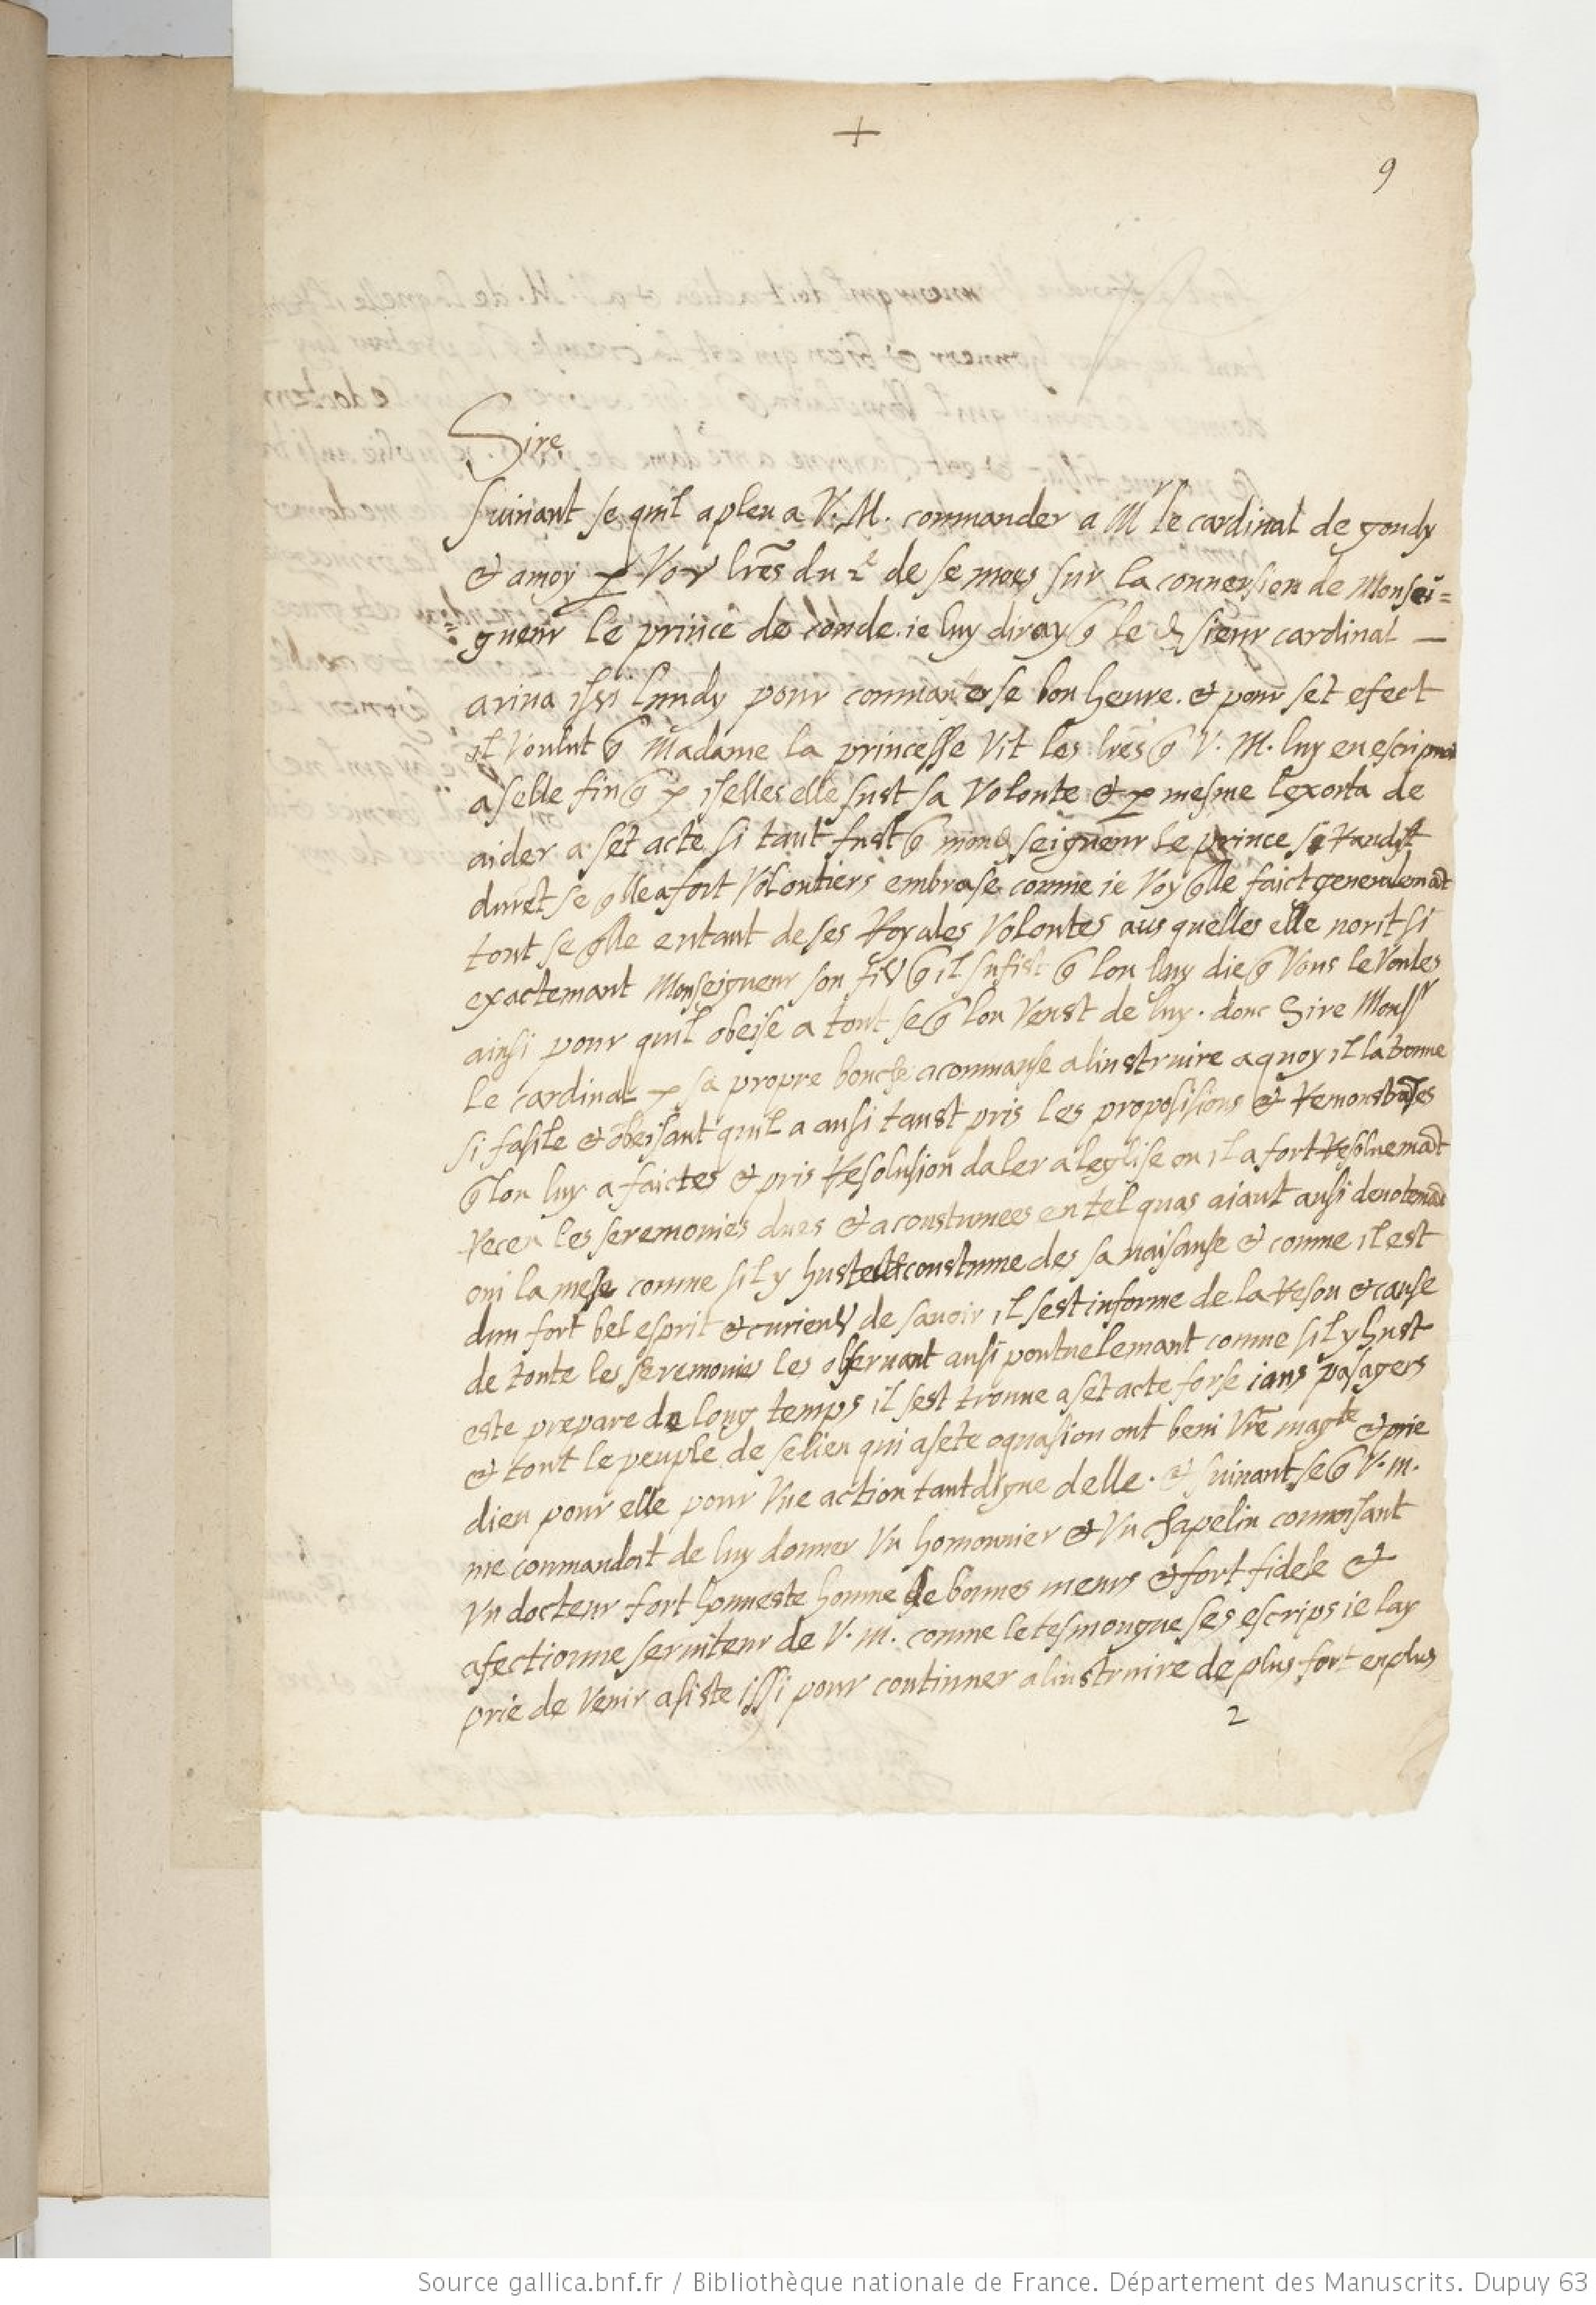 +
9
Sire
suivant se quil a pleu a V. M. commander a Mr le cardinal de gondy
& a moy p vos lres du 2e de se moes sur la conversion de Monsei=
=gneur le prince de conde. ie luy diray q le dt sieur cardinal —
ariva issi lundy pour commanser se bon heure. & pour set efect
il voulut q Madame la princesse vit les lres q V. M. luy en escripvoit
a selle fin q p iselles elle sust sa volonte & p mesme lexorta de
aider a set acte si tant fust q mond seigneur le prince se randist
duret se qlle a fort volontiers embrase comme ie voy qlle faict generalemāt
tout se qlle entant de ses royales volontes aus quelles elle norit si
exactemant Monseigneur son fils q il sufist q lon luy die q vous le voules
ainsi pour quil obeise a tout se q lon veust de luy. donc Sire Monsr
le cardinal p sa propre bouche a commanse a linstruire a quoy il la trouve
si fasile & obeisant quil a ausi taust pris les proposisions & remonstrāses
q lon luy a faictes & pris resolusion daler a leglise ou il a fort resoluemāt
receu les seremonies dues & acoustumees en tel quas aiant ausi devotemāt
oui la messe comme sil y hust este acoustume des sa naisanse & comme il est
dun fort bel esprit & curieus de savoir il sest informe de la reson & cause
de toute les seremonies les observant ausi pontuelemant comme sil y hust
este prepare de long temps il sest trouve a set acte forse ians pasagers
& tout le peuple de se lieu qui a sete oquasion ont beni vre magte & prie
dieu pour elle pour une action tant digne delle. & suivant se q V. m.
me commandoit de luy donner un homonnier & un chapelin connoisant
un docteur fort honneste homme de bonnes meurs & fort fidele &
afectionne serviteur de V. m. comme le tesmongne ses escrips ie lay
prie de venir asiste issi pour continuer a linstruire de plus fort en plus
2
Source gallica.bnf.fr / Bibliothèque nationale de France. Département des Manuscrits. Dupuy 63